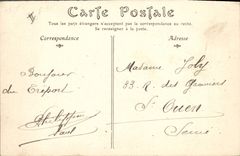 Carte Postale
Tous les pays étrangers n'acceptent pas la correspondance au recto.
Se renseigner à la poste.
Correspondance
Adresse
Bonjour
du Tréport
Paul
Madame Joly
33. R. des
St Ouen
Seine